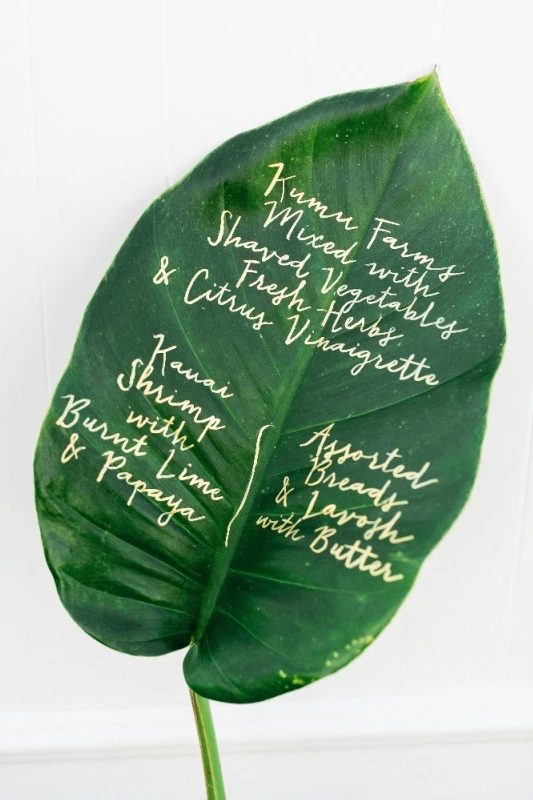 Kumu Farms
Mixed with
Shaved Vegetables
Fresh Herbs
& Citrus Vinaigrette
Kauai
Shrimp
with
Burnt Lime
& Papaya
Assorted
Breads
& Lavosh
with Butter